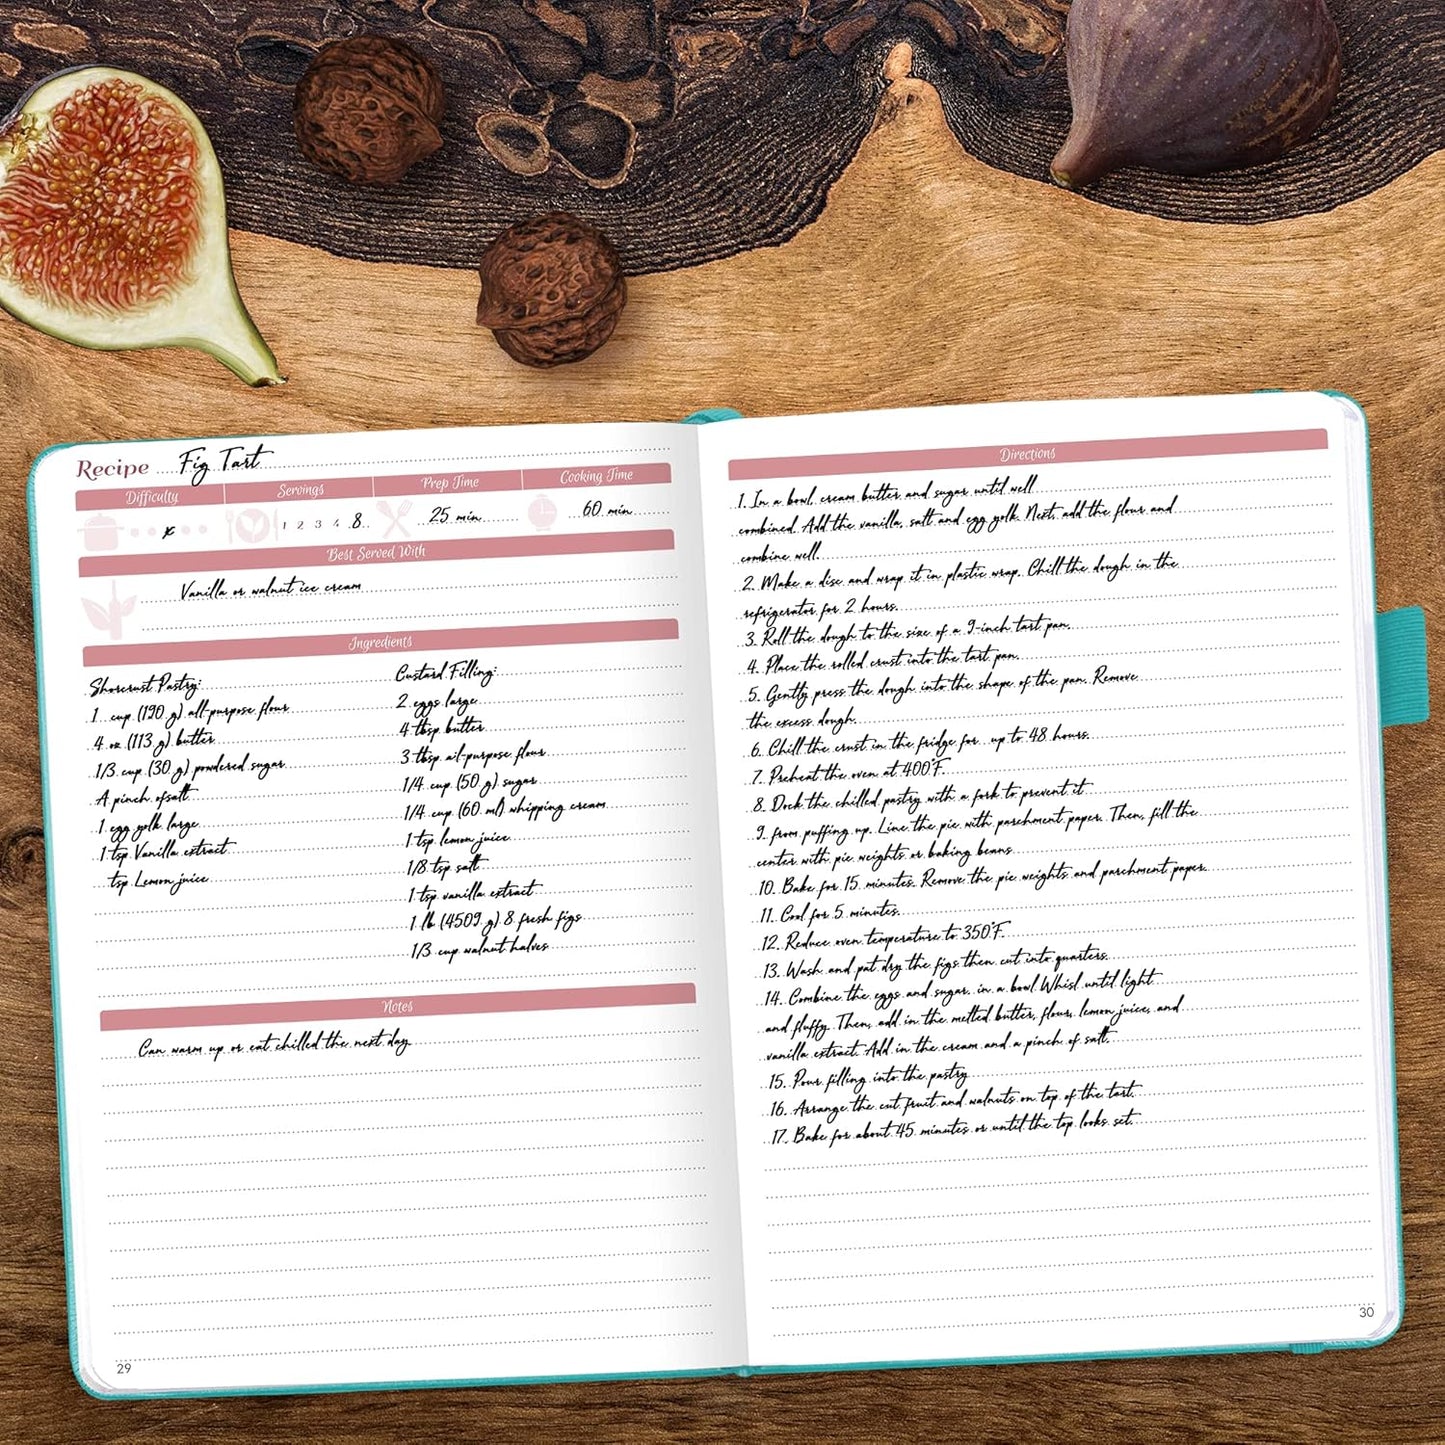 Recipe Fig Tart
Difficulty Servings Prep Time Cooking Time
x 1 2 3 4 8 25 min 60 min
Best Served With
Vanilla or walnut ice cream
Ingredients
Shorcrust Pastry:
1 cup (190 g) all-purpose flour
4 oz (113 g) butter
1/3 cup (30 g) powdered sugar
A pinch ofsalt
1 egg yolk large
1 tsp Vanilla extract
tsp Lemon juice
Custard Filling:
2 eggs large
4 tbsp butter
3 tbsp all-purpose flour
1/4 cup (50 g) sugar
1/4 cup (60 ml) whipping cream
1 tsp lemon juice
1/8 tsp salt
1 tsp vanilla extract
1 lb (4509 g) 8 fresh figs
1/3 cup walnut halves
Notes
Can warm up or eat chilled the next day
29
Directions
1. In a bowl, cream butter and sugar until well
combined. Add the vanilla, salt and egg yolk. Next, add the flour and
combine well.
2. Make a disc and wrap it in plastic wrap. Chill the dough in the
refrigerator for 2 hours.
3. Roll the dough to the size of a 9-inch tart pan.
4. Place the rolled crust into the tart pan.
5. Gently press the dough into the shape of the pan. Remove
the excess dough.
6. Chill the crust in the fridge for up to 48 hours.
7. Preheat the oven at 400°F.
8. Dock the chilled pastry with a fork to prevent it
9. from puffing up. Line the pie with parchment paper. Then, fill the
center with pie weights or baking beans
10. Bake for 15 minutes. Remove the pie weights and parchment paper.
11. Cool for 5 minutes.
12. Reduce oven temperature to 350°F.
13. Wash and pat dry the figs then cut into quarters.
14. Combine the eggs and sugar in a bowl Whisl until light
and fluffy. Then, add in the melted butter, flour, lemon juice, and
vanilla extract. Add in the cream and a pinch of salt.
15. Pour filling into the pastry
16. Arrange the cut fruit and walnuts on top of the tart.
17. Bake for about 45 minutes or until the top looks set.
30